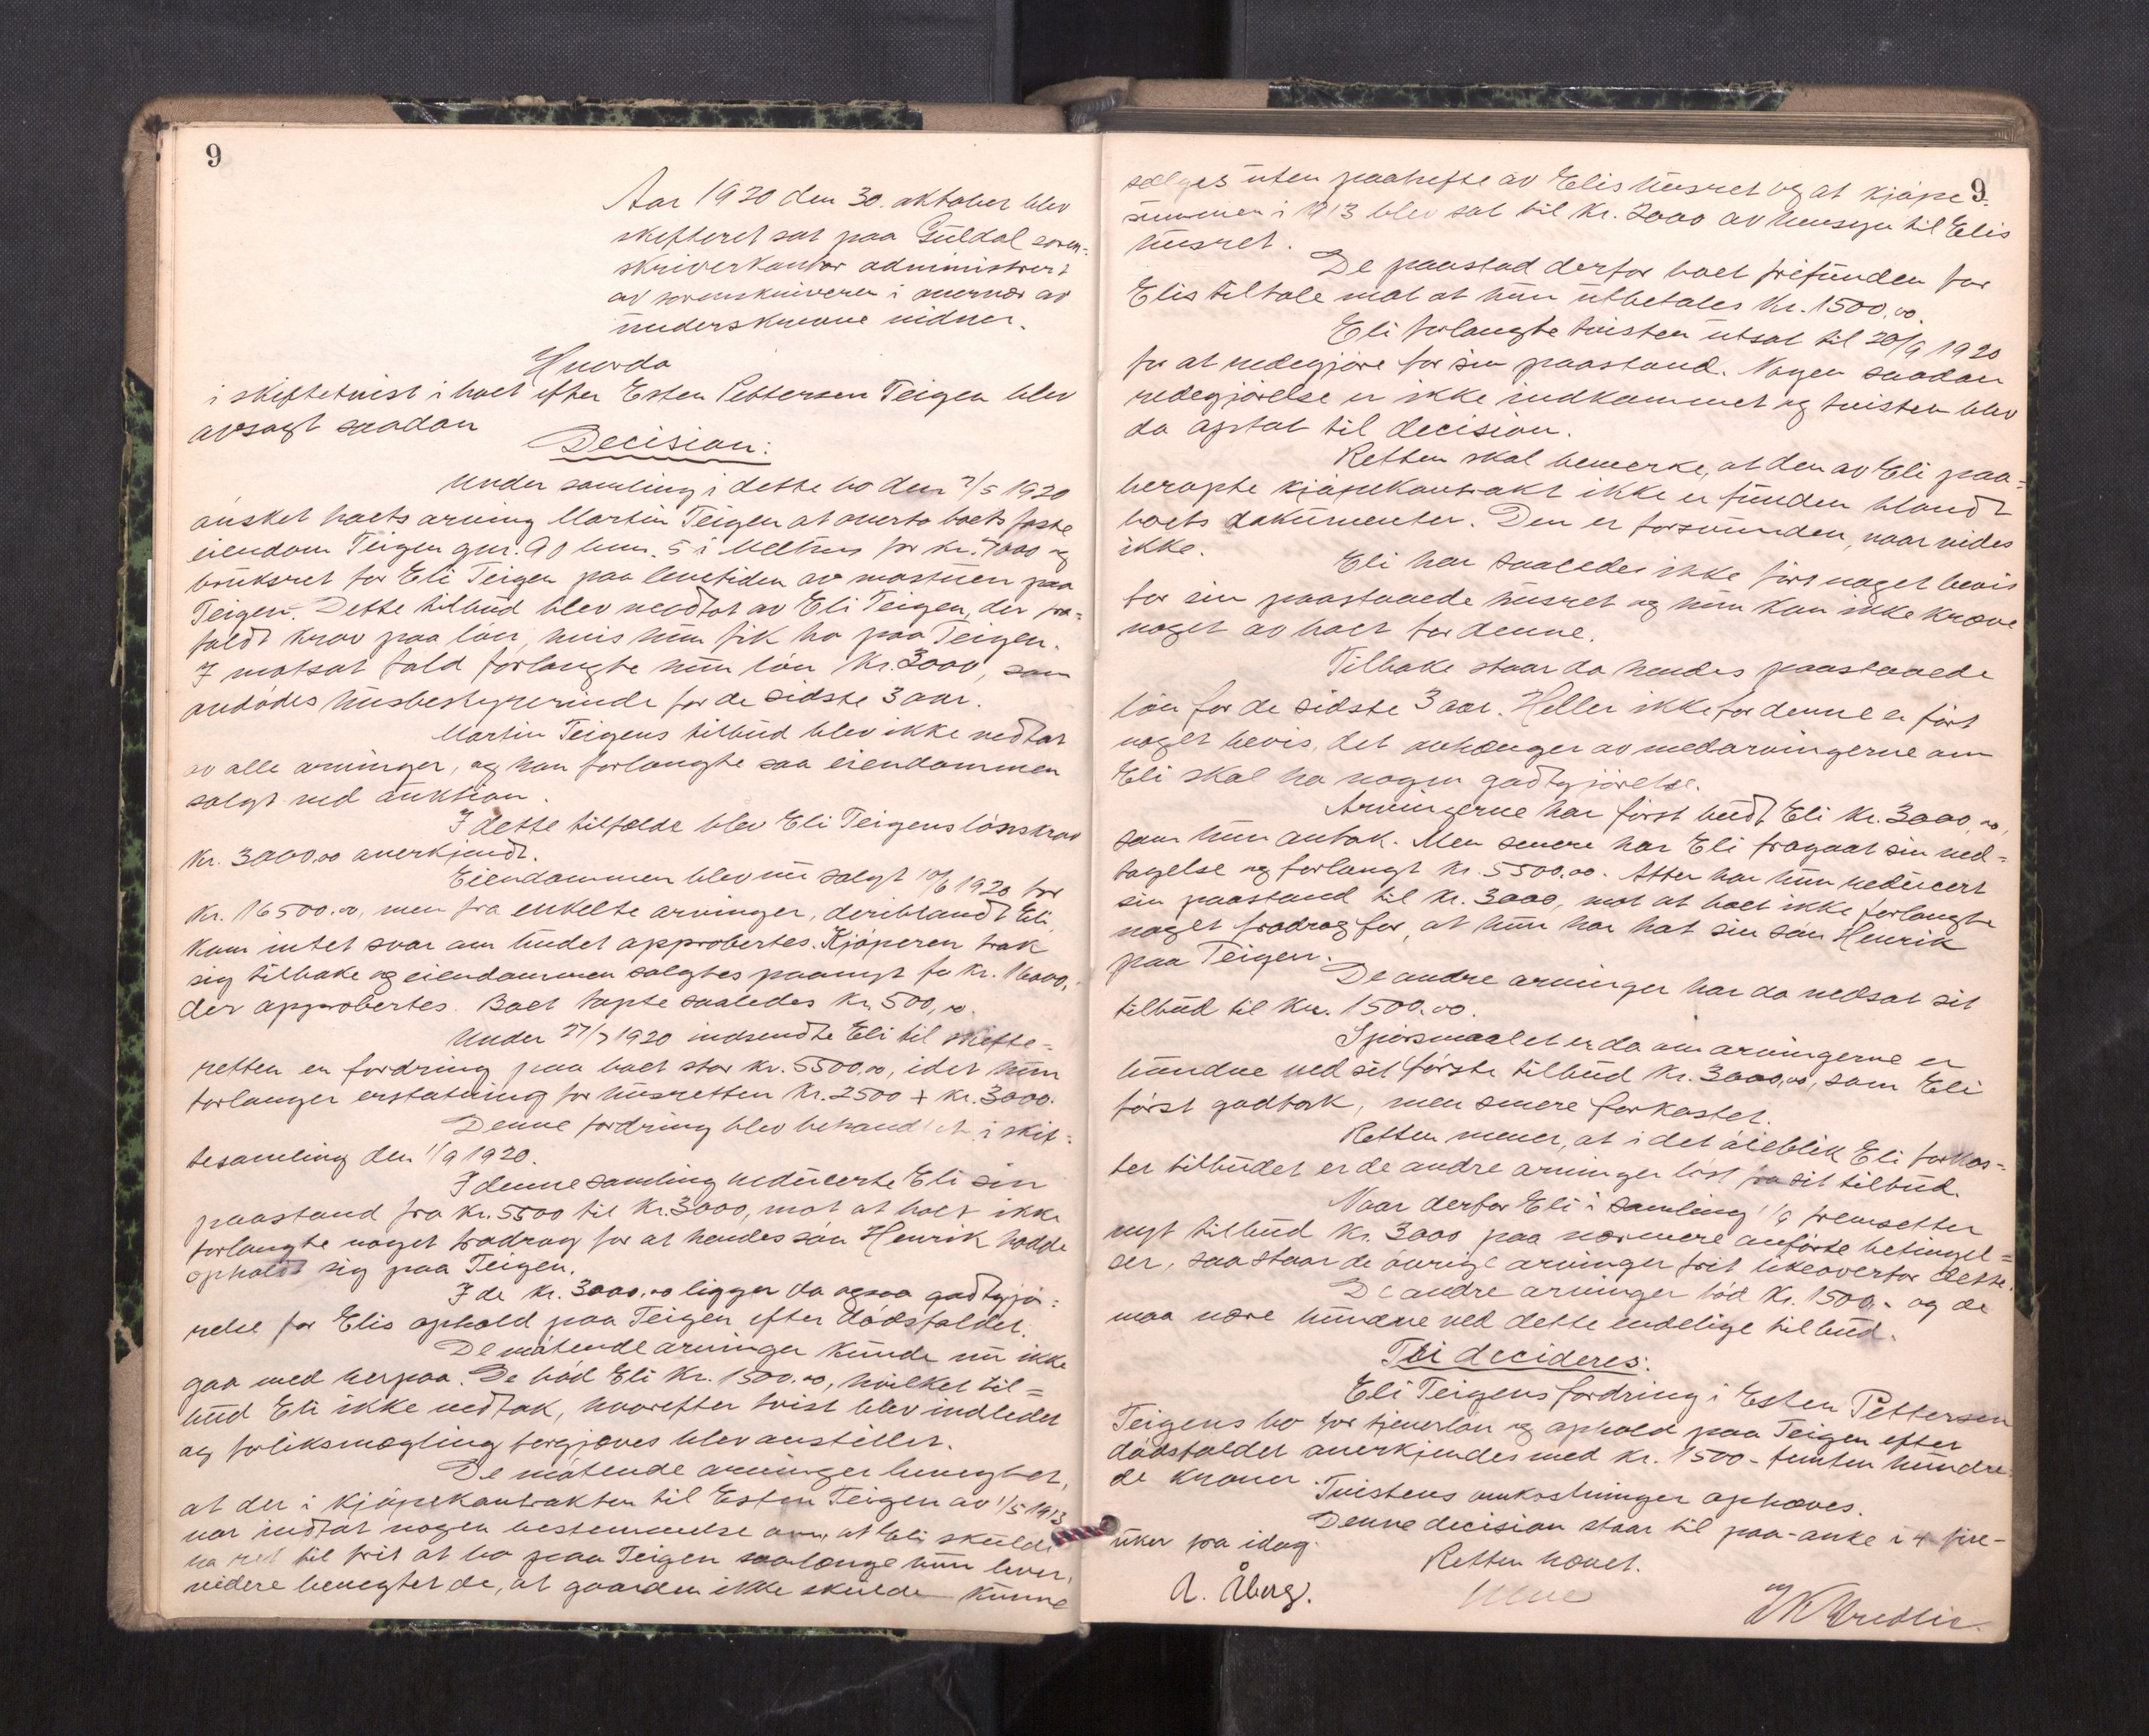 9
Aar 1920 den 30. oktober blev
skifteret sat paa Guldal soren-
skriverkontor administrert
av sorenskriveren i overvær av
underskrevne vidner.
Hvorda
i skiftetvist i boet efter Esten Pettersen Teigen blev
avsagt saadan
Decision:
Under samling i dette bo den 7/5 1920
ønsket boets arving Martin Teigen at overta boets faste
eiendom Teigen gnr. 90 bnr. 5 i Melhus for kr. 7000 og
bruksret for Eli Teigen paa levetiden av mastuen paa
Teigen. Dette tilbud blev vedtat av Eli Teigen, der fra-
faldt krav paa løn, hvis hun fik bo paa Teigen.
I motsat fald forlangte hun løn kr. 3000, som
avdødes husbestyrerinde for de sidste 3 aar.
Martin Teigens tilbud blev ikke vedtat
av alle arvinger, og han forlangte saa eiendommen
solgt ved auktion.
I dette tilfælde blev Eli Teigens lønskrav
kr. 3000.00 anerkjendt.
Eiendommen blev nu solgt 10/6 1920 for
kr. 16500.00, men fra enkelte arvinger, deriblandt Eli
kom intet svar om budet approbertes. Kjøperen trak
sig tilbake og eiendommen solgtes paanyt for kr. 16000,-
der approbertes. Boet tapte saaledes kr. 500,00.
Under 27/7 1920 indsendte Eli til skifte-
retten en fordring paa boet stor kr. 5500.00, idet hun
forlanger erstatning for husretten kr. 2500 + kr. 3000.
Denne fordring blev behandlet i skif-
tesamling den 1/9 1920.
I denne samling reducerte Eli sin
paastand fra kr. 5500 til kr. 3000, mot at boet ikke
forlangte noget fradrag for at hendes søn Henrik hadde
opholdt sig paa Teigen.
I de kr. 3000.00 ligger da ogsaa godtgjø-
relse for Elis ophold paa Teigen efter dødsfaldet.
De møtende arvinger kunde nu ikke
gaa med herpaa. De bød Eli kr. 1500.00, hvilket til-
bud Eli ikke vedtok, hvorefter tvist blev indledet
og forliksmægling forgjæves blev anstillet.
De møtende arvinger benegtet,
at der i kjøpekontrakten til Esten Teigen av 1/5 1913
var indtat nogen bestemmelse om, at Eli skulde
ha ret til frit at bo paa Teigen saalænge hun lever,
videre benegtet de, at gaarden ikke skulde kunne
9
sælges uten paahefte av Elis husret og at kjøpe-
summen i 1913 blev sat til kr. 2000 av hensyn til Elis
husret.
De paastod derfor boet frifunden for
Elis tiltale mot at hun utbetales kr. 1500.00.
Eli forlangte tvisten utsat til 20/9 1920
for at redegjøre for sin paastand. Nogen saadan
redegjørelse er ikke indkommet og tvisten blev
da optat til decision.
Retten skal bemerke, at den av Eli paa-
beropte kjøpekontrakt ikke er funden blandt
boets dokumenter. Den er forsvunden, naar vides
ikke.
Eli har saaledes ikke ført noget bevis
for sin paastaaede husret og hun kan ikke kræve
noget av boet for denne.
Tilbake staar da hendes paastaaede
løn for de sidste 3 aar. Heller ikke for denne er ført
noget bevis, det avhænger av medarvingerne om
Eli skal ha nogen godtgjørelse.
Arvingerne har først budt Eli kr. 3000,00,
som hun antok. Men senere har Eli fragaat sin ved-
tagelse og forlangt kr. 5500.00. Atter har hun reducert
sin paastand til kr. 3000, mot at boet ikke forlangte
noget fradrag for, at hun har hat sin søn Henrik
paa Teigen.
De andre arvinger har da nedsat sit
tilbud til kr. 1500.00.
Spørsmaalet er da om arvingerne er
bundne ved sit første tilbud kr. 3000,00, som Eli
først godtok, men senere forkastet.
Retten mener, at i det øieblik Eli forkas-
ter tilbudet er de andre arvinger løst fra sit tilbud.
Naar derfor Eli i samling 1/9 fremsetter
nyt tilbud kr. 3000 paa nærmere anførte betingel-
ser, saa staar de øvrige arvinger frit likeoverfor dette.
De andre arvinger bød kr. 1500,- og de
maa være bundne ved dette endelige tilbud.
Ti decideres:
Eli Teigens fordring i Esten Pettersen
Teigens bo for tjenerløn og ophold paa Teigen efter
dødsfaldet anerkjendes med kr. 1500 - femten hundre-
de kroner. Tvistens omkostninger ophæves.
Denne decision staar til paa-anke i 4 fire-
uker fra idag.
Retten hævet.
A. Åberg.